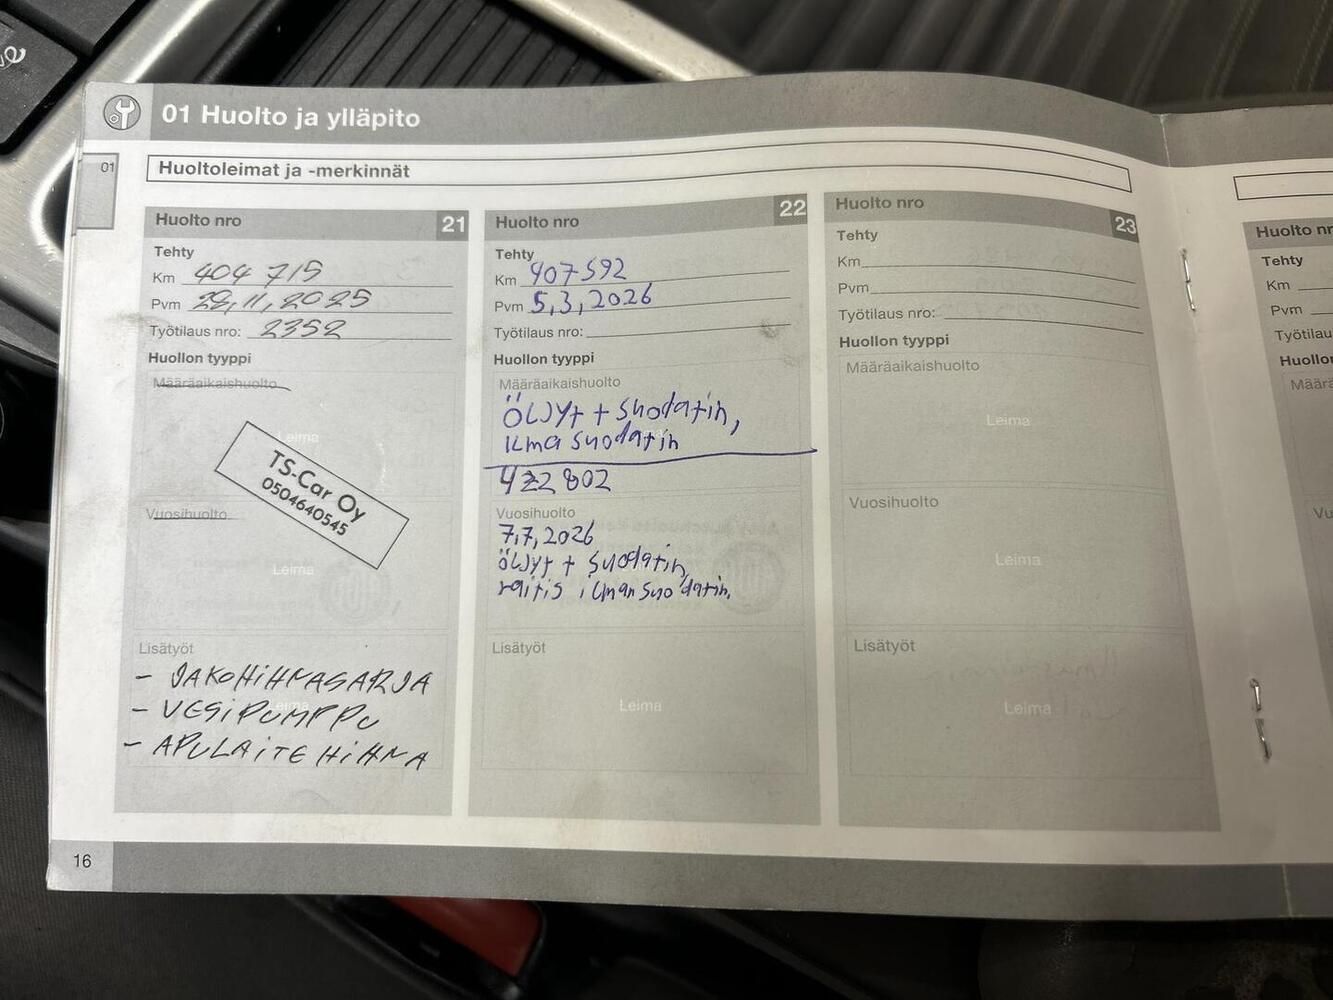 ve
01 Huolto ja ylläpito
01
Huoltoleimat ja -merkinnät
Huolto nro 21
Tehty
Km 404 715
Pvm 28,11,2025
Työtilaus nro: 2352
Huollon tyyppi
Määräaikaishuolto
Leima
TS-Car Oy
0504640545
Vuosihuolto
Leima
Lisätyöt
- JAKOHiHNASARJA
Leima
- VESiPUMPPU
- APULAiTE HiHNA
Huolto nro 22
Tehty
Km 407592
Pvm 5,3,2026
Työtilaus nro:
Huollon tyyppi
Määräaikaishuolto
Öljyt + suodatin,
ilmasuodatin
422802
Vuosihuolto
7,7,2026
öljyt + suodatin,
raitis ilman suodatin,
Lisätyöt
Leima
Huolto nro 23
Tehty
Km
Pvm
Työtilaus nro:
Huollon tyyppi
Määräaikaishuolto
Leima
Vuosihuolto
Leima
Lisätyöt
Leima
Huolto nr
Tehty
Km
Pvm
Työtilau
Huollon
Määrä
Vu
16